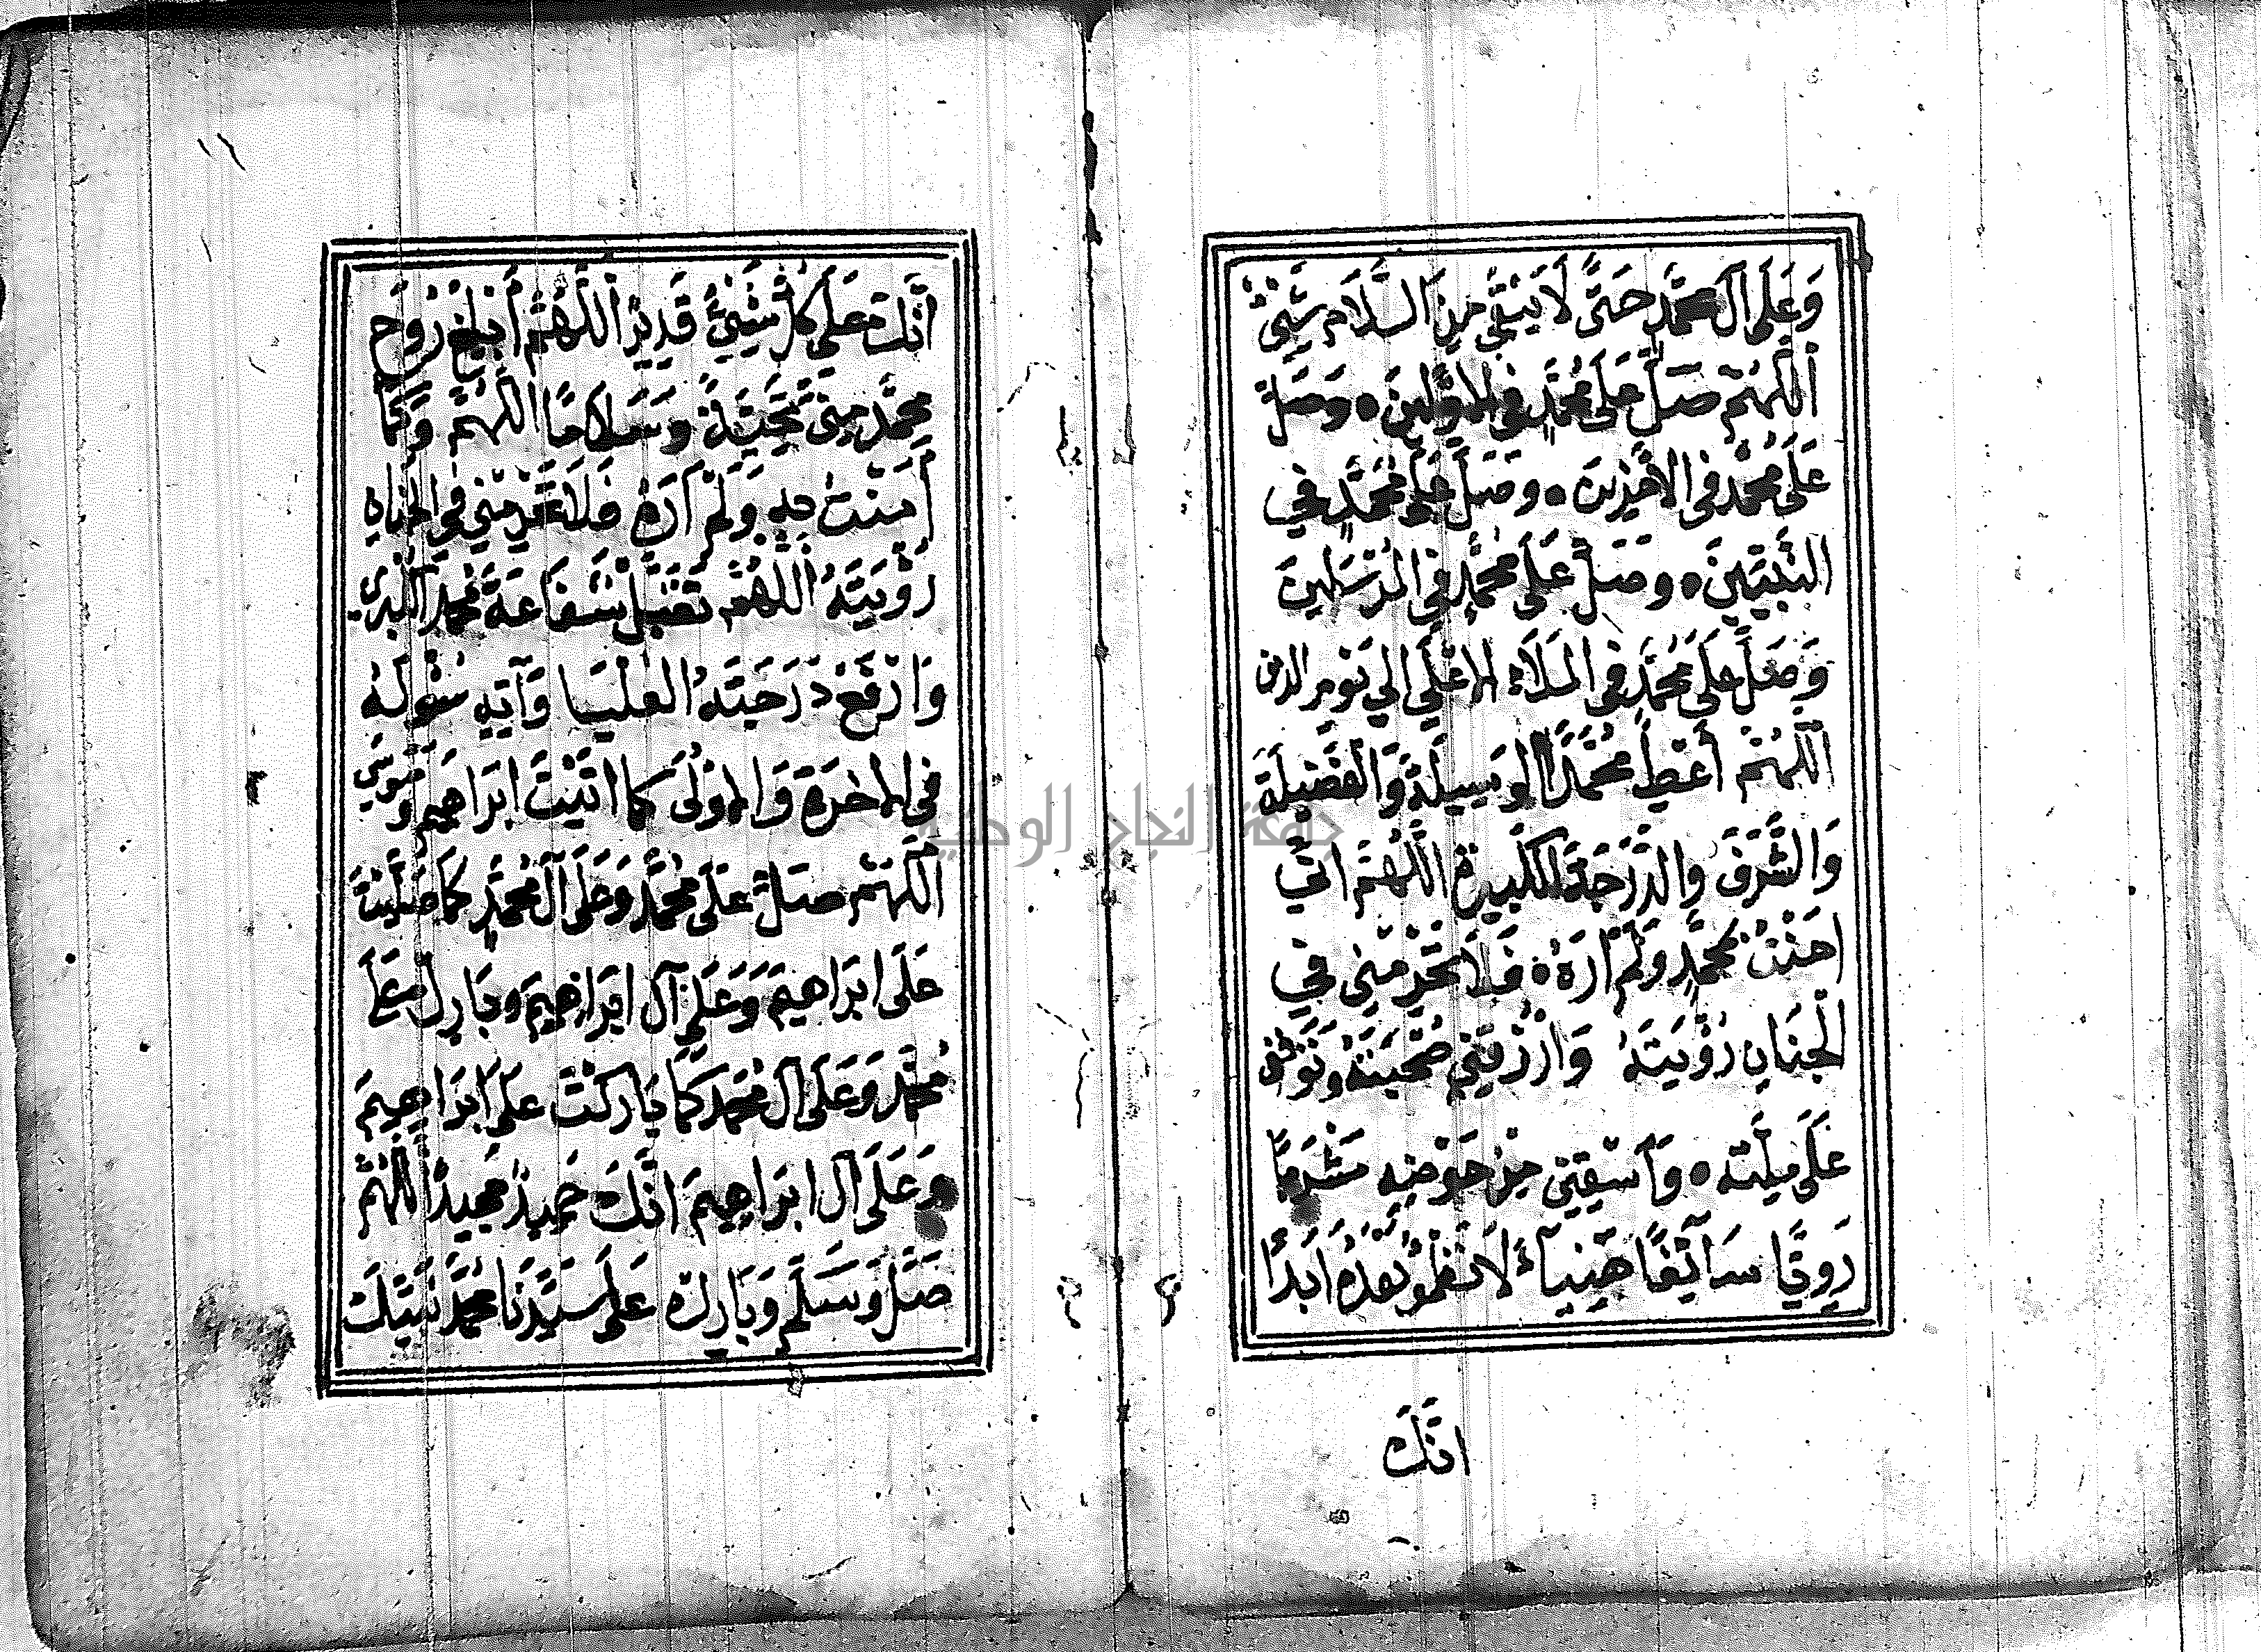 وَعَلَى آلِ مُحَمَّدٍ حَتَّى لَا يَبْقَى مِنَ السَّلَامِ شَيْئٌ
اَللَّهُمَّ صَلِّ عَلَى مُحَمَّدٍ فِي الاَوَّلِينَ ٥ وَصَلِّ
عَلَى مُحَمَّدٍ فِى الاَخِرِينَ ٥ وصَلِّ عَلَى مُحَمَّدٍ فِي
النَّبِيِّينَ ٥ وصَلِّ عَلَى مُحَمَّدٍ فِي المُرْسَلِينَ
وَصَلِّ عَلَى مُحَمَّدٍ فِى المَلَاءِ الاَعْلَى اِلَي يَوْمِ الدين
اَللَّهُمَّ أَعْطِ مُحَمَّدًا الوَسِيلَةَ وَالفَضِيلَةَ
وَالشَّرَفَ وَالدَّرَجَةَ الكَبِيرَةَ اَللَّهُمَّ اِنِّي
اٰمَنْتُ بمُحَمَّدٍ وَلَمْ اَرَهُ ٥ فَلَا تَحْرِمْنِي فِي
الْجِنَانِ رُؤْيَتَهُ وَارْزُقْنِي صُحْبَتَهُ وَتَوَفَّنِى
عَلَى مِلَّتِهِ ٥ وَاَسْقِنِي مِنْ حَوْضِهِ مَشْرَبًا
رَوِيًّا سَآئِغًا هَنِيآءً لَا نَظْمَؤُ بَعْدَهُ اَبَدًا
اِنَّكَ
اِنَّكَ عَلَى كُلِّ شَيْئٍ قَدِيرٌ اَللَّهُمَّ أَبْلِغْ رُوحَ
مُحَمَّدٍ مِنِّى تَحِيَّةً وَسَلَامًا اللَّهُمَّ وَكَمَا
آمَنْتُ بِهِ وَلَمْ اَرَهُ فَلَا تَحْرِمْنِي فِي الجِنَانِ
رُؤْيَتَهُ اَللَّهُمَّ تَقَبَّلْ شَفَاعَةَ مُحَمَّدٍ الكُبْرَى
وَارْفَعْ دَرَجَتَهُ العُلْيَا وَآتِهِ سُؤْلَهُ
فِى الاٰخِرَةِ وَالاُولَى كَمَا اٰتَيْتَ اِبْرَاهِيمَ وَمُوسَى
اَللَّهُمَّ صَلِّ عَلَى مُحَمَّدٍ وَعَلَى آلِ مُحَمَّدٍ كَمَا صَلَّيْتَ
عَلَى ابْرَاهِيمَ وَعَلَى آلِ ابْرَاهِيمَ وَبَارِك عَلَى
مُحَمَّدٍ وَعَلَى آلِ مُحَمَّدٍ كَمَا بَارَكْتَ عَلَى ابْرَاهِيمَ
وَعَلَى آلِ ابْرَاهِيمَ اِنَّكَ حَمِيدٌ مَجِيدٌ اَللَّهُمَّ
صَلِّ وَسَلِّم وَبَارِك عَلَى سَيِّدِنَا مُحَمَّدٍ نَبِيِّكَ
جامعة النجاح الوطنية